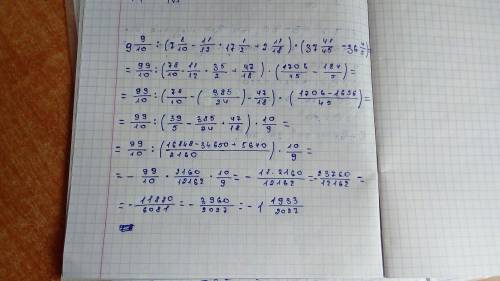 9 9/10 : (7 8/10 - 11/12 · 17 1/2 + 2 11/18) · (37 41/45 - 36 4/5) =
= 99/10 : (78/10 · 11/12 · 35/2 + 47/18) · (1706/45 - 184/5) =
= 99/10 : (78/10 - (385/24) - 47/18) · (1706-1656/45) =
= 99/10 : (39/5 - 385/24 + 47/18) · 10/9 =
= 99/10 : (16848-34650+5640/2160) · 10/9 =
= - 99/10 · 2160/12162 · 10/9 = - 11·2160/12162 = - 23760/12162 =
= - 11880/6081 = - 3960/2027 = - 1 1933/2027